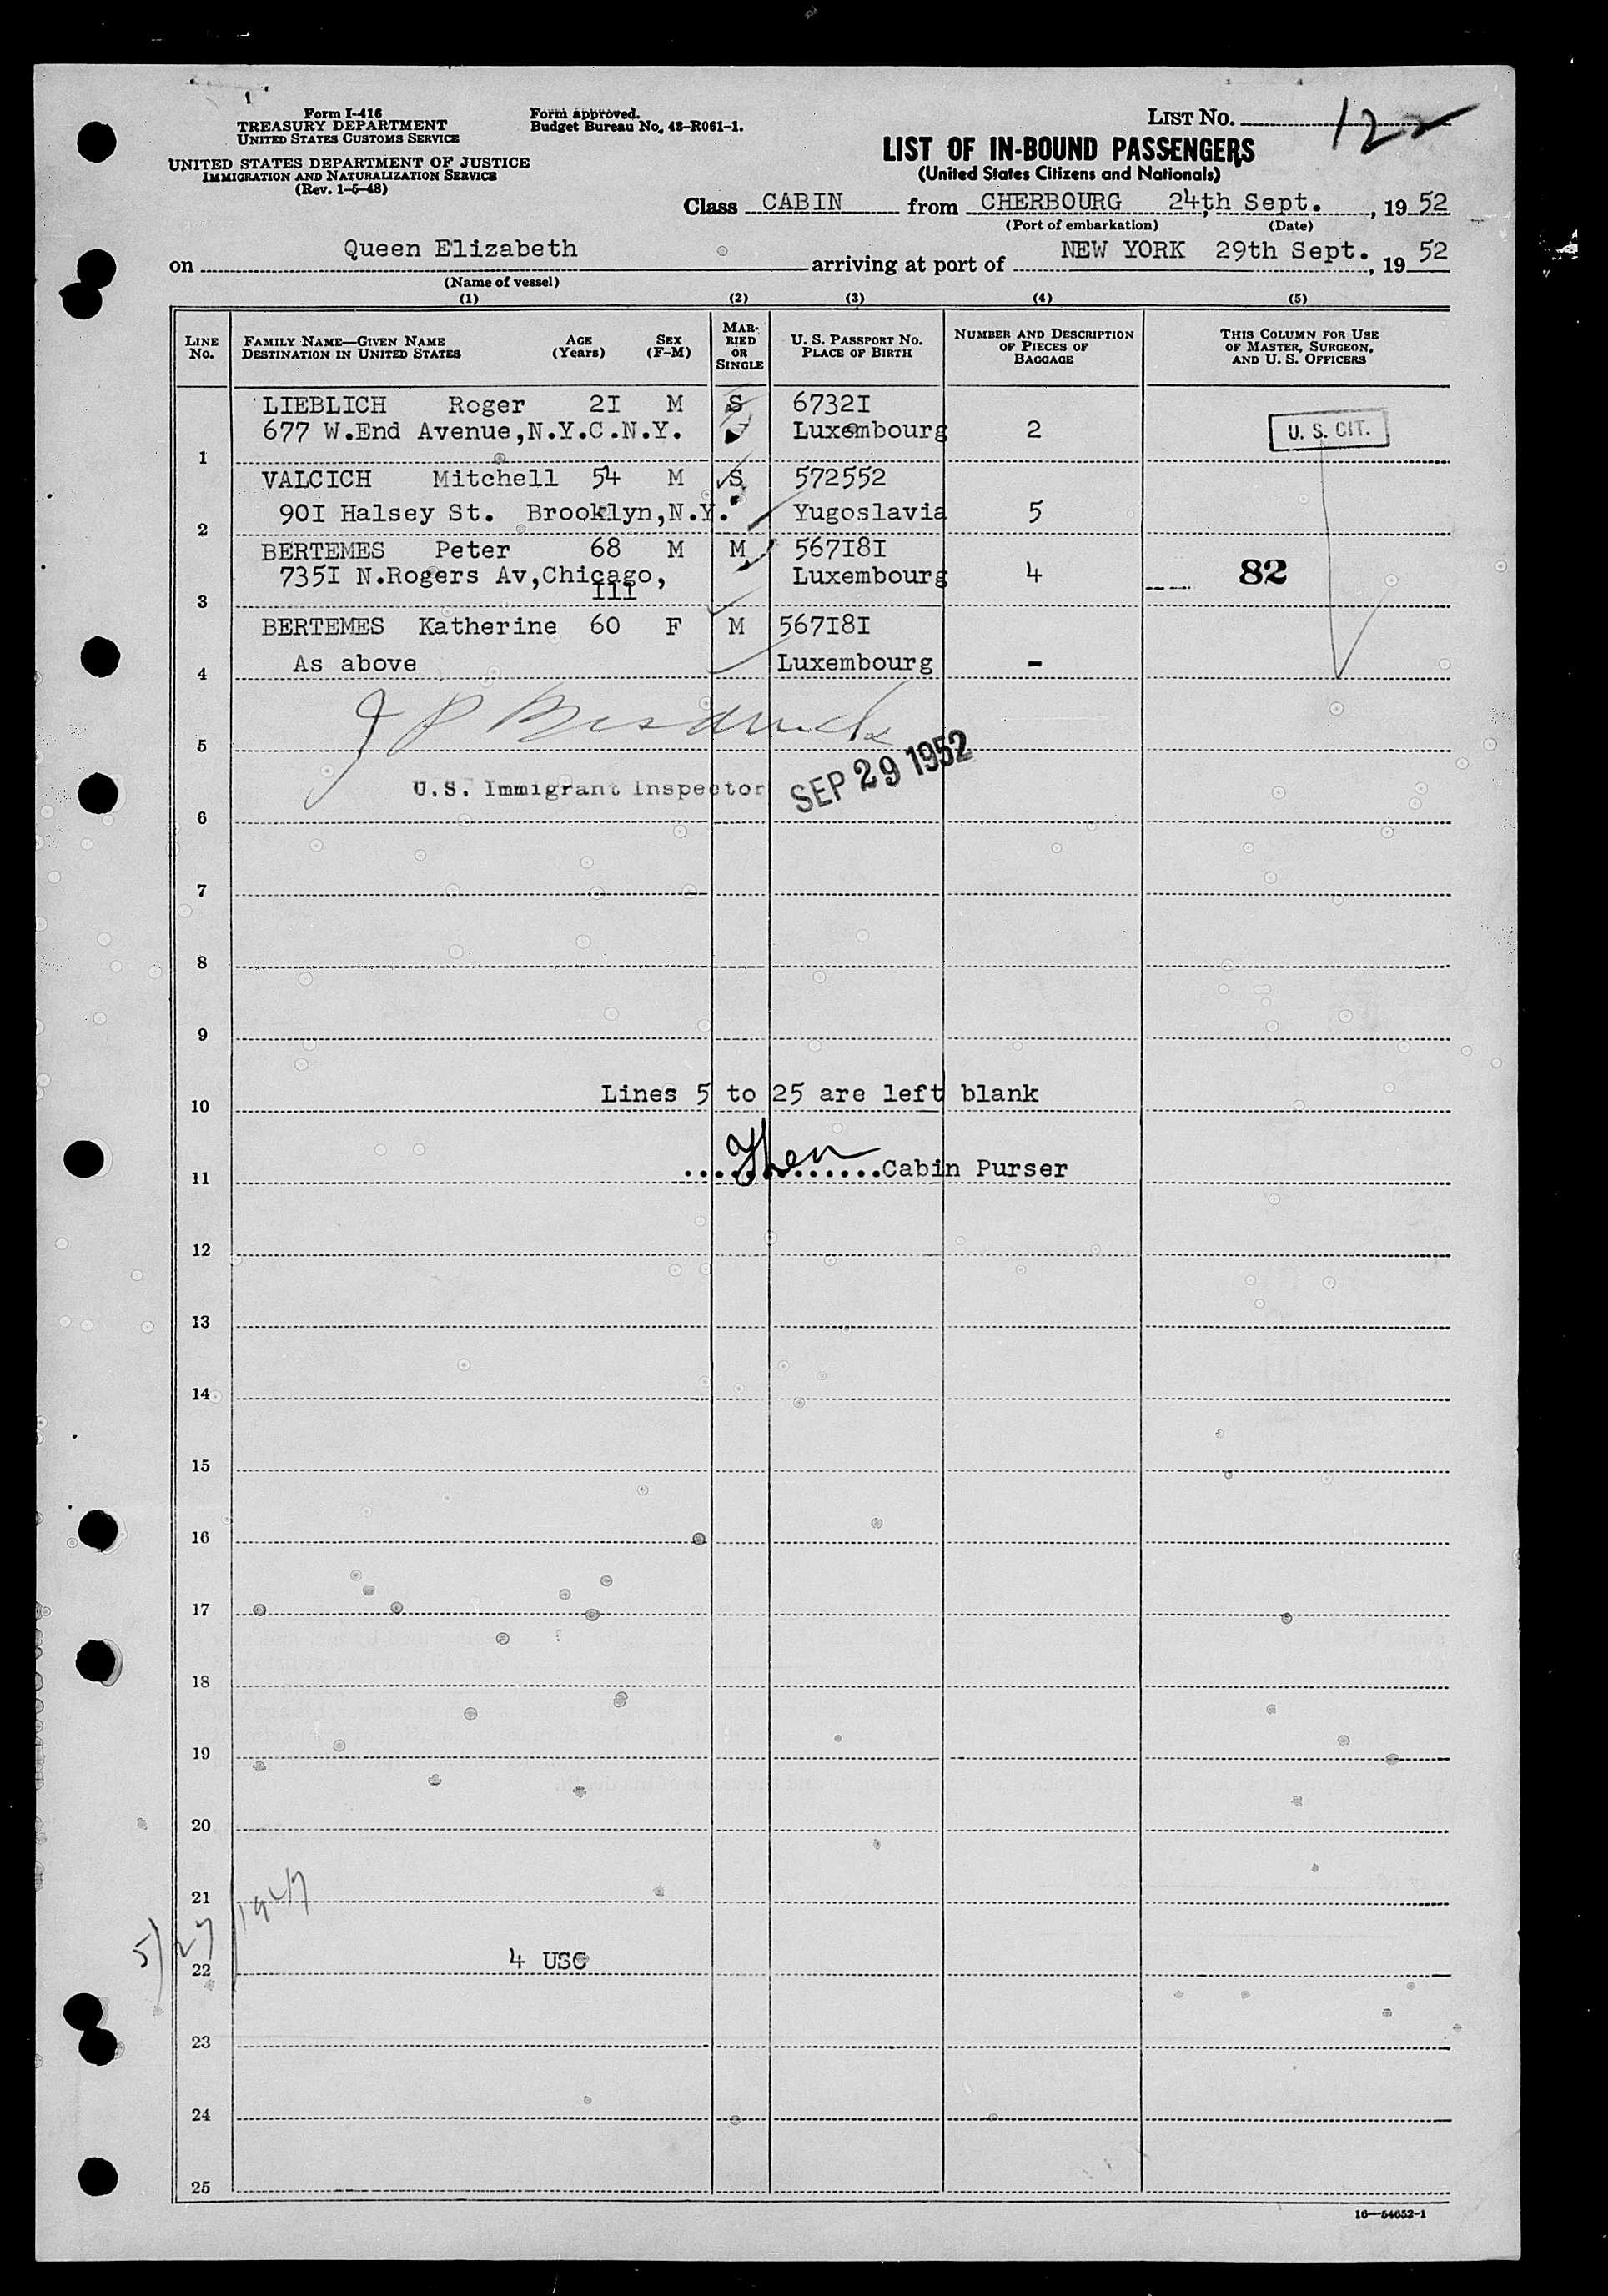 Form I-416
TREASURY DEPARTMENT
UNITED STATES CUSTOMS SERVICE
UNITED STATES DEPARTMENT OF JUSTICE
IMMIGRATION AND NATURALIZATION SERVICE
(Rev. 1-5-48)
Form approved.
Budget Bureau No. 43-R061-1.
LIST No. 122
LIST OF IN-BOUND PASSENGERS
(United States Citizens and Nationals)
Class CABIN from CHERBOURG 24th Sept. , 19 52
(Port of embarkation) (Date)
on Queen Elizabeth arriving at port of NEW YORK 29th Sept. , 19 52
(Name of vessel)
(1) (2) (3) (4) (5)
LINE No. FAMILY NAME—GIVEN NAME DESTINATION IN UNITED STATES AGE (Years) SEX (F-M) MARRIED OR SINGLE U. S. PASSPORT No. PLACE OF BIRTH NUMBER AND DESCRIPTION OF PIECES OF BAGGAGE THIS COLUMN FOR USE OF MASTER, SURGEON, AND U. S. OFFICERS
LIEBLICH Roger 2I M S 6732I
1 677 W.End Avenue,N.Y.C.N.Y. Luxembourg 2 U. S. CIT.
VALCICH Mitchell 54 M S 572552
2 90I Halsey St. Brooklyn,N.Y. Yugoslavia 5
BERTEMES Peter 68 M M 567I8I
735I N.Rogers Av,Chicago, Luxembourg 4 82
3 Ill
BERTEMES Katherine 60 F M 567I8I
4 As above Luxembourg -
5
U.S. Immigrant Inspector SEP 29 1952
6
7
8
9
10 Lines 5 to 25 are left blank
11 ..............Cabin Purser
12
13
14
15
16
17
18
19
20
21
5/27/1947
22 4 USC
23
24
25
16—54652-1